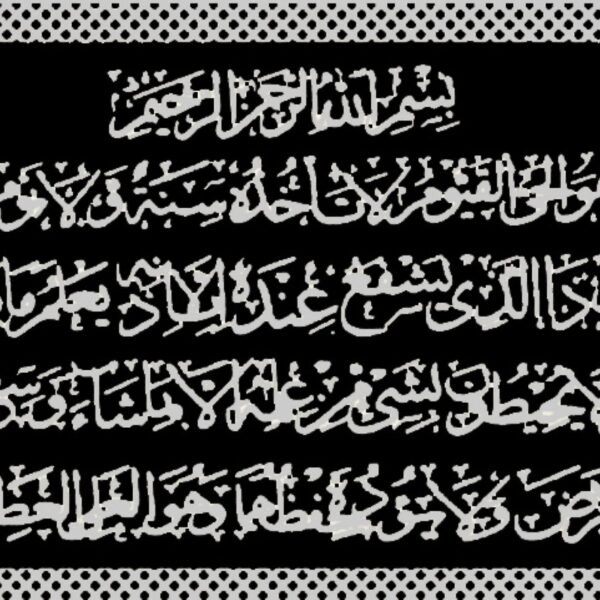 بسم الله الرحمن الرحيم
هو الحي القيوم لا تأخذه سنة ولا نوم
ذا الذي يشفع عنده إلا بإذنه يعلم ما
لا يحيطون بشيء من علمه إلا بما شاء وسع
الأرض ولا يؤده حفظهما وهو العلي العظيم